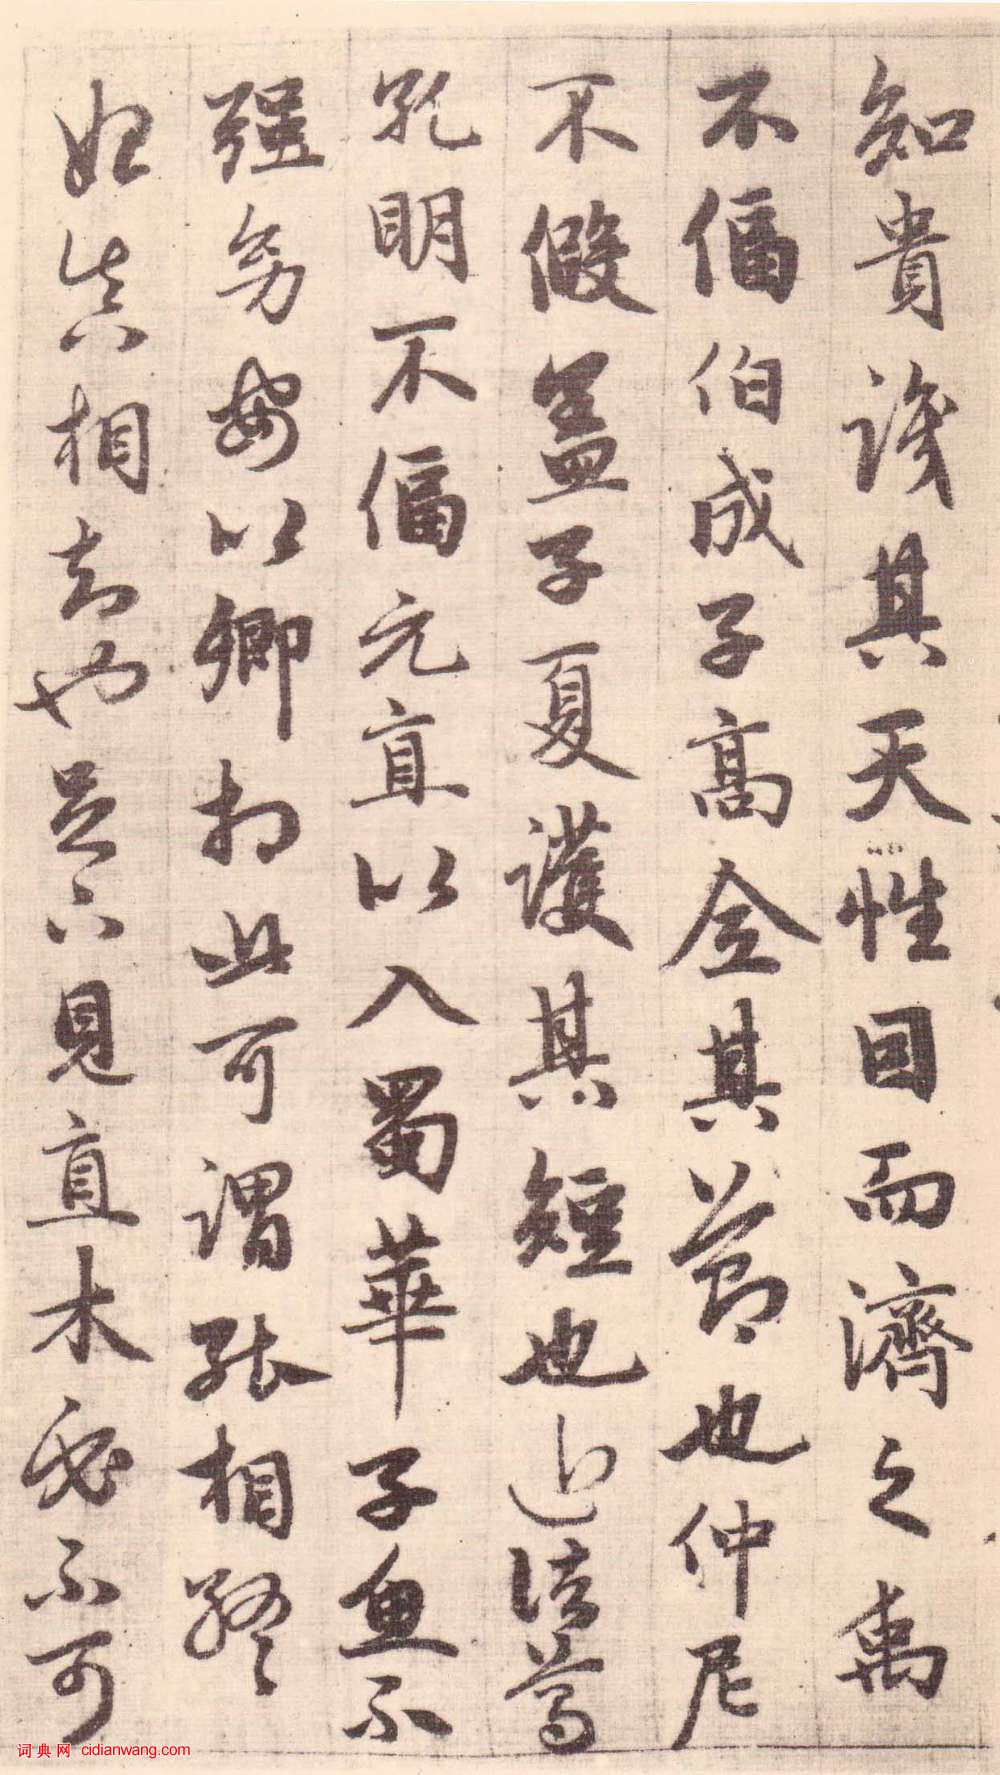 知貴識其天性因而濟之禹
不偪伯成子高全其節也仲尼
不假蓋子夏護其短也近諸葛
孔明不偪元直以入蜀華子魚不
强幼安以卿相此可謂能相終
始真相知也足下見直木必不可
词典网 cidianwang.com